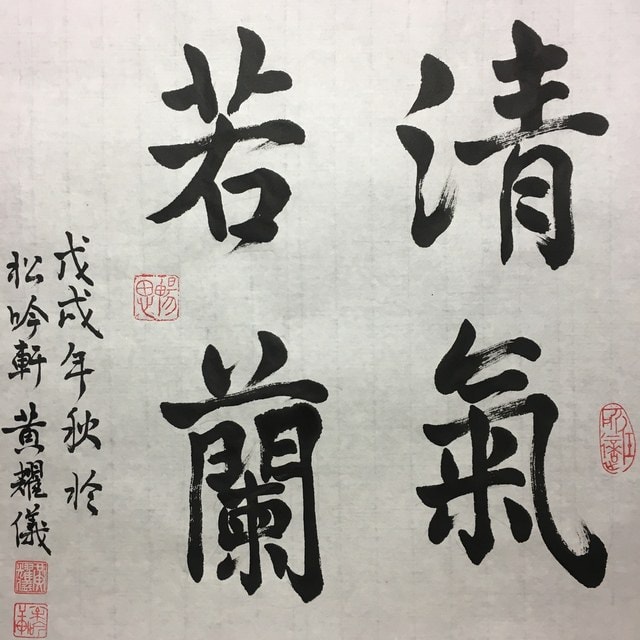 清氣
若蘭
戊戌年秋於
松吟軒黃耀儀
暢思